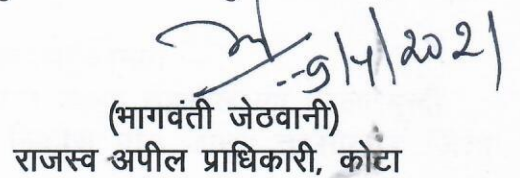 9/4/2021
(भागवंती जेठवानी)
राजस्व अपील प्राधिकारी, कोटा